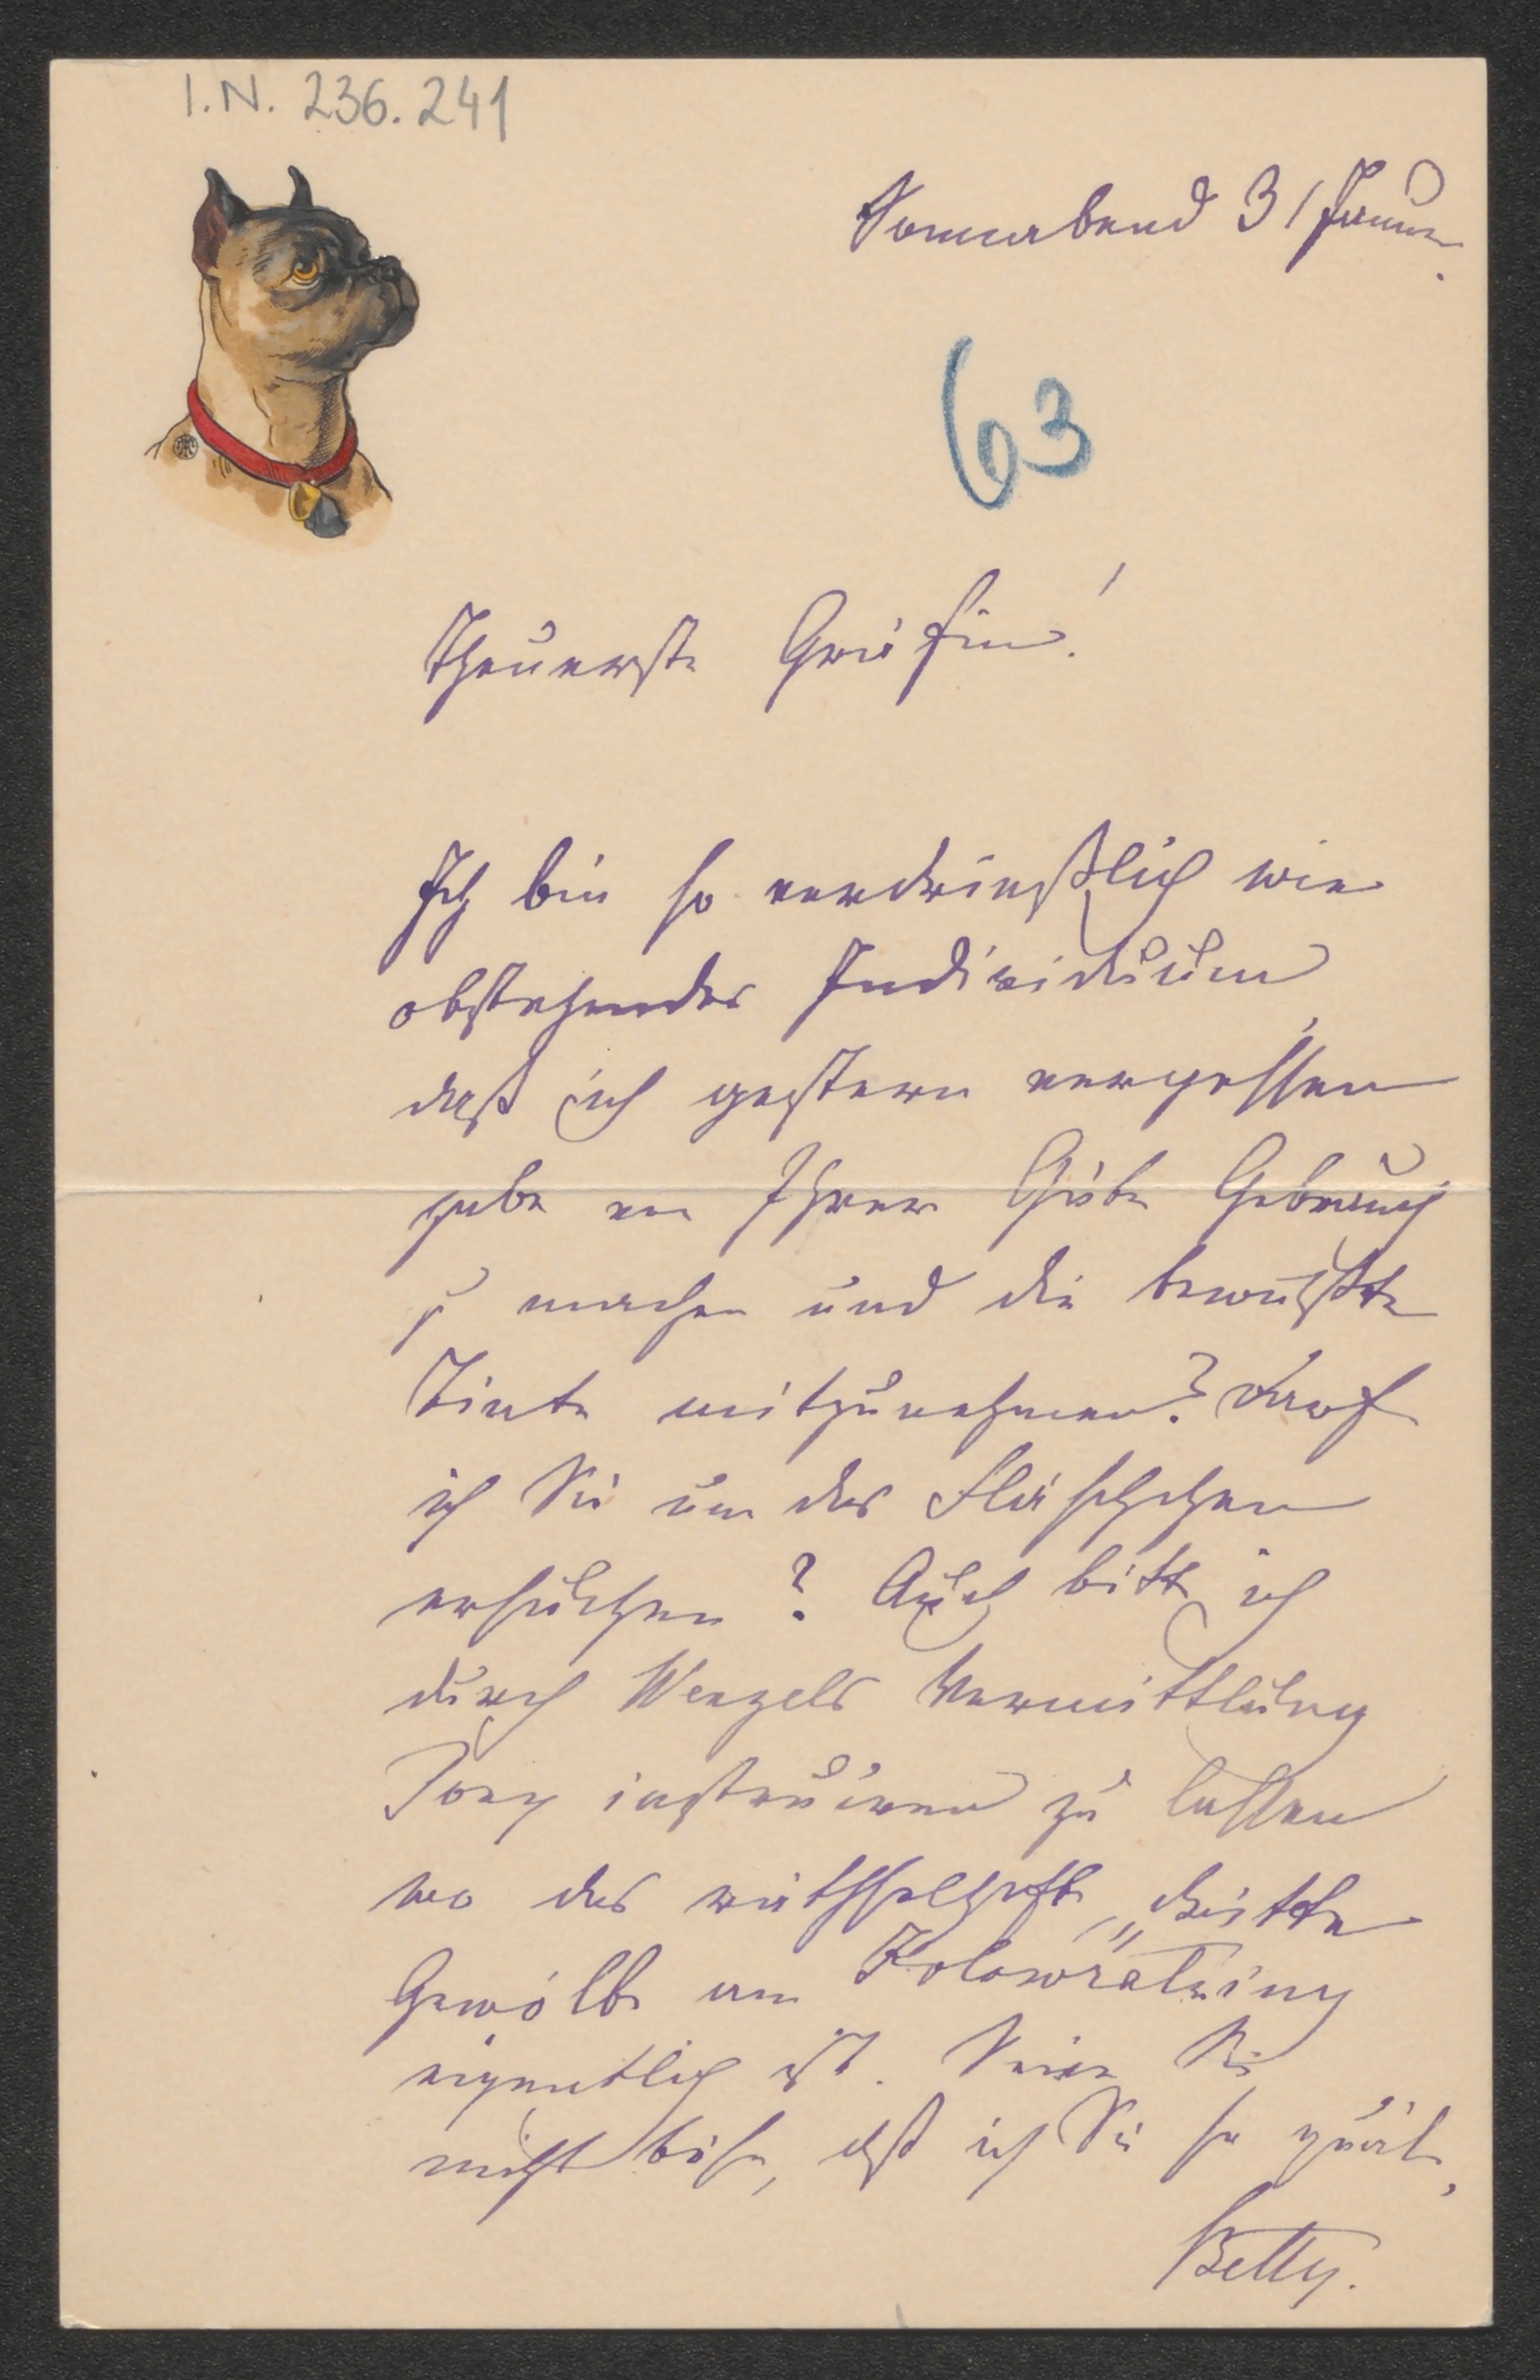 I.N. 236.241
Sonnabend 31 Januar
63
Theuerste Gräfin!
Ich bin so verdrießlich wie
obstehendes Individuum
daß ich gestern vergessen
habe von Ihrer Güte Gebrauch
zu machen und die bewußte
Tinte mitzunehmen? Darf
ich Sie um das Fläschchen
ersuchen? Auch bitte ich
durch Wenzels Vermittlung
Tony instruiren zu lassen
wo das räthselhafte „dritte
Gewölb am Kolowratring
eigentlich ist. Seien Sie
nicht böse, daß ich Sie so quäle,
Betty.